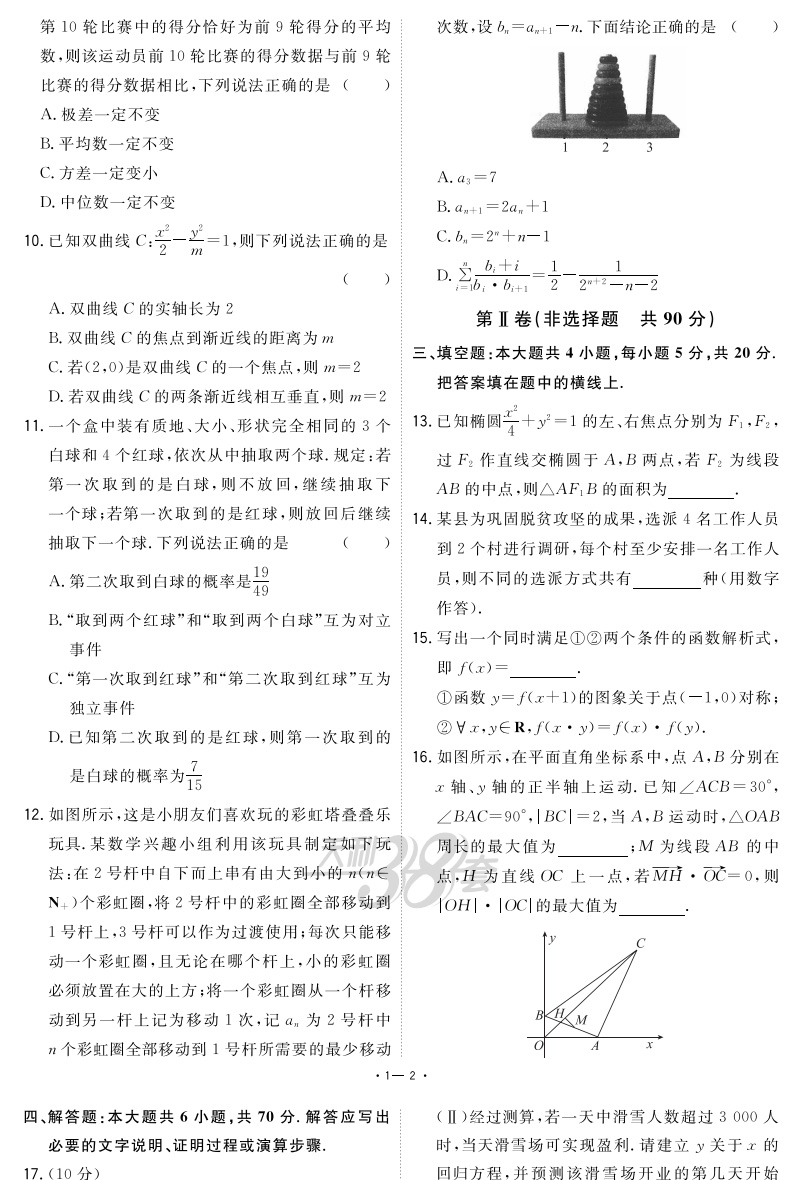 第 10 轮比赛中的得分恰好为前 9 轮得分的平均
数,则该运动员前 10 轮比赛的得分数据与前 9 轮
比赛的得分数据相比,下列说法正确的是 (　　)
A. 极差一定不变
B. 平均数一定不变
C. 方差一定变小
D. 中位数一定不变
10. 已知双曲线 C: x²/2 − y²/m = 1,则下列说法正确的是
(　　)
A. 双曲线 C 的实轴长为 2
B. 双曲线 C 的焦点到渐近线的距离为 m
C. 若(2,0)是双曲线 C 的一个焦点,则 m=2
D. 若双曲线 C 的两条渐近线相互垂直,则 m=2
11. 一个盒中装有质地、大小、形状完全相同的 3 个
白球和 4 个红球,依次从中抽取两个球. 规定:若
第一次取到的是白球,则不放回,继续抽取下
一个球;若第一次取到的是红球,则放回后继续
抽取下一个球. 下列说法正确的是 (　　)
A. 第二次取到白球的概率是 19/49
B. “取到两个红球”和“取到两个白球”互为对立
事件
C. “第一次取到红球”和“第二次取到红球”互为
独立事件
D. 已知第二次取到的是红球,则第一次取到的
是白球的概率为 7/15
12. 如图所示,这是小朋友们喜欢玩的彩虹塔叠叠乐
玩具. 某数学兴趣小组利用该玩具制定如下玩
法:在 2 号杆中自下而上串有由大到小的 n(n∈
N₊)个彩虹圈,将 2 号杆中的彩虹圈全部移动到
1 号杆上,3 号杆可以作为过渡使用;每次只能移
动一个彩虹圈,且无论在哪个杆上,小的彩虹圈
必须放置在大的上方;将一个彩虹圈从一个杆移
动到另一杆上记为移动 1 次,记 aₙ 为 2 号杆中
n 个彩虹圈全部移动到 1 号杆所需要的最少移动
次数,设 bₙ=aₙ₊₁−n. 下面结论正确的是 (　　)
1 2 3
A. a₃=7
B. aₙ₊₁=2aₙ+1
C. bₙ=2ⁿ+n−1
D. ∑ⁿᵢ₌₁ (bᵢ+i)/(bᵢ·bᵢ₊₁) = 1/2 − 1/(2ⁿ⁺²−n−2)
第Ⅱ卷(非选择题　共 90 分)
三、填空题:本大题共 4 小题,每小题 5 分,共 20 分.
把答案填在题中的横线上.
13. 已知椭圆 x²/4 + y²=1 的左、右焦点分别为 F₁,F₂,
过 F₂ 作直线交椭圆于 A,B 两点,若 F₂ 为线段
AB 的中点,则△AF₁B 的面积为________.
14. 某县为巩固脱贫攻坚的成果,选派 4 名工作人员
到 2 个村进行调研,每个村至少安排一名工作人
员,则不同的选派方式共有________种(用数字
作答).
15. 写出一个同时满足①②两个条件的函数解析式,
即 f(x)=________.
①函数 y=f(x+1)的图象关于点(−1,0)对称;
②∀x,y∈R,f(x·y)=f(x)·f(y).
16. 如图所示,在平面直角坐标系中,点 A,B 分别在
x 轴、y 轴的正半轴上运动. 已知∠ACB=30°,
∠BAC=90°,|BC|=2,当 A,B 运动时,△OAB
周长的最大值为________;M 为线段 AB 的中
点,H 为直线 OC 上一点,若 MH⃗·OC⃗=0,则
|OH|·|OC|的最大值为________.
y
C
B H M
O A x
天利38套
·1—2·
四、解答题:本大题共 6 小题,共 70 分. 解答应写出
必要的文字说明、证明过程或演算步骤.
17. (10 分)
(Ⅱ)经过测算,若一天中滑雪人数超过 3 000 人
时,当天滑雪场可实现盈利. 请建立 y 关于 x 的
回归方程,并预测该滑雪场开业的第几天开始